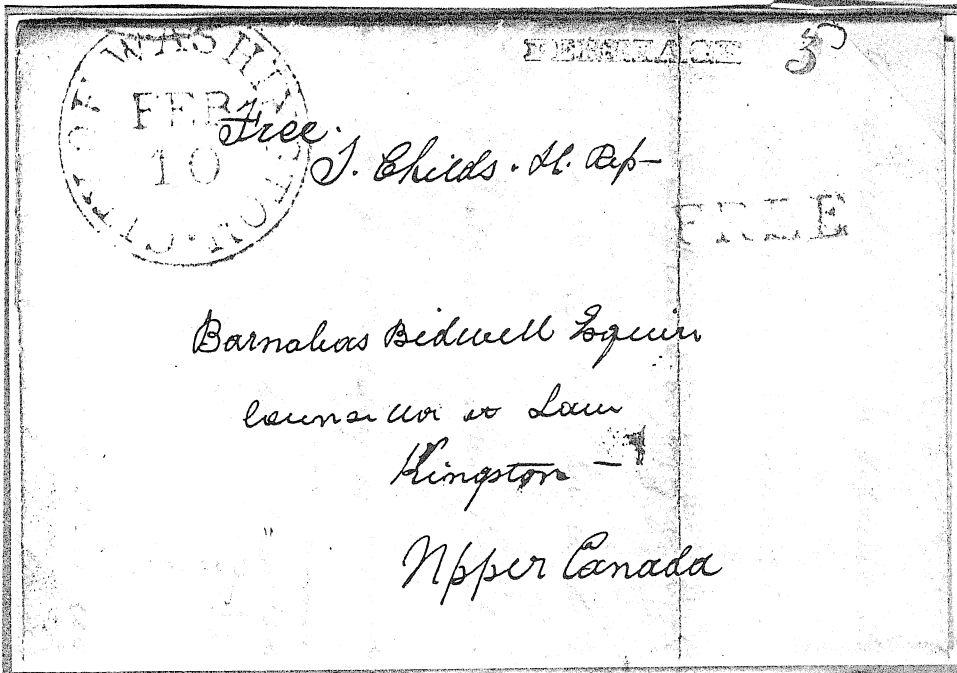 CITY OF WASHINGTON
FEB
10
FERRIAGE 3
Free.
T. Childs. H. Rep-
FREE
Barnabas Bidwell Esquire
Counsellor at Law
Kingston -
Upper Canada